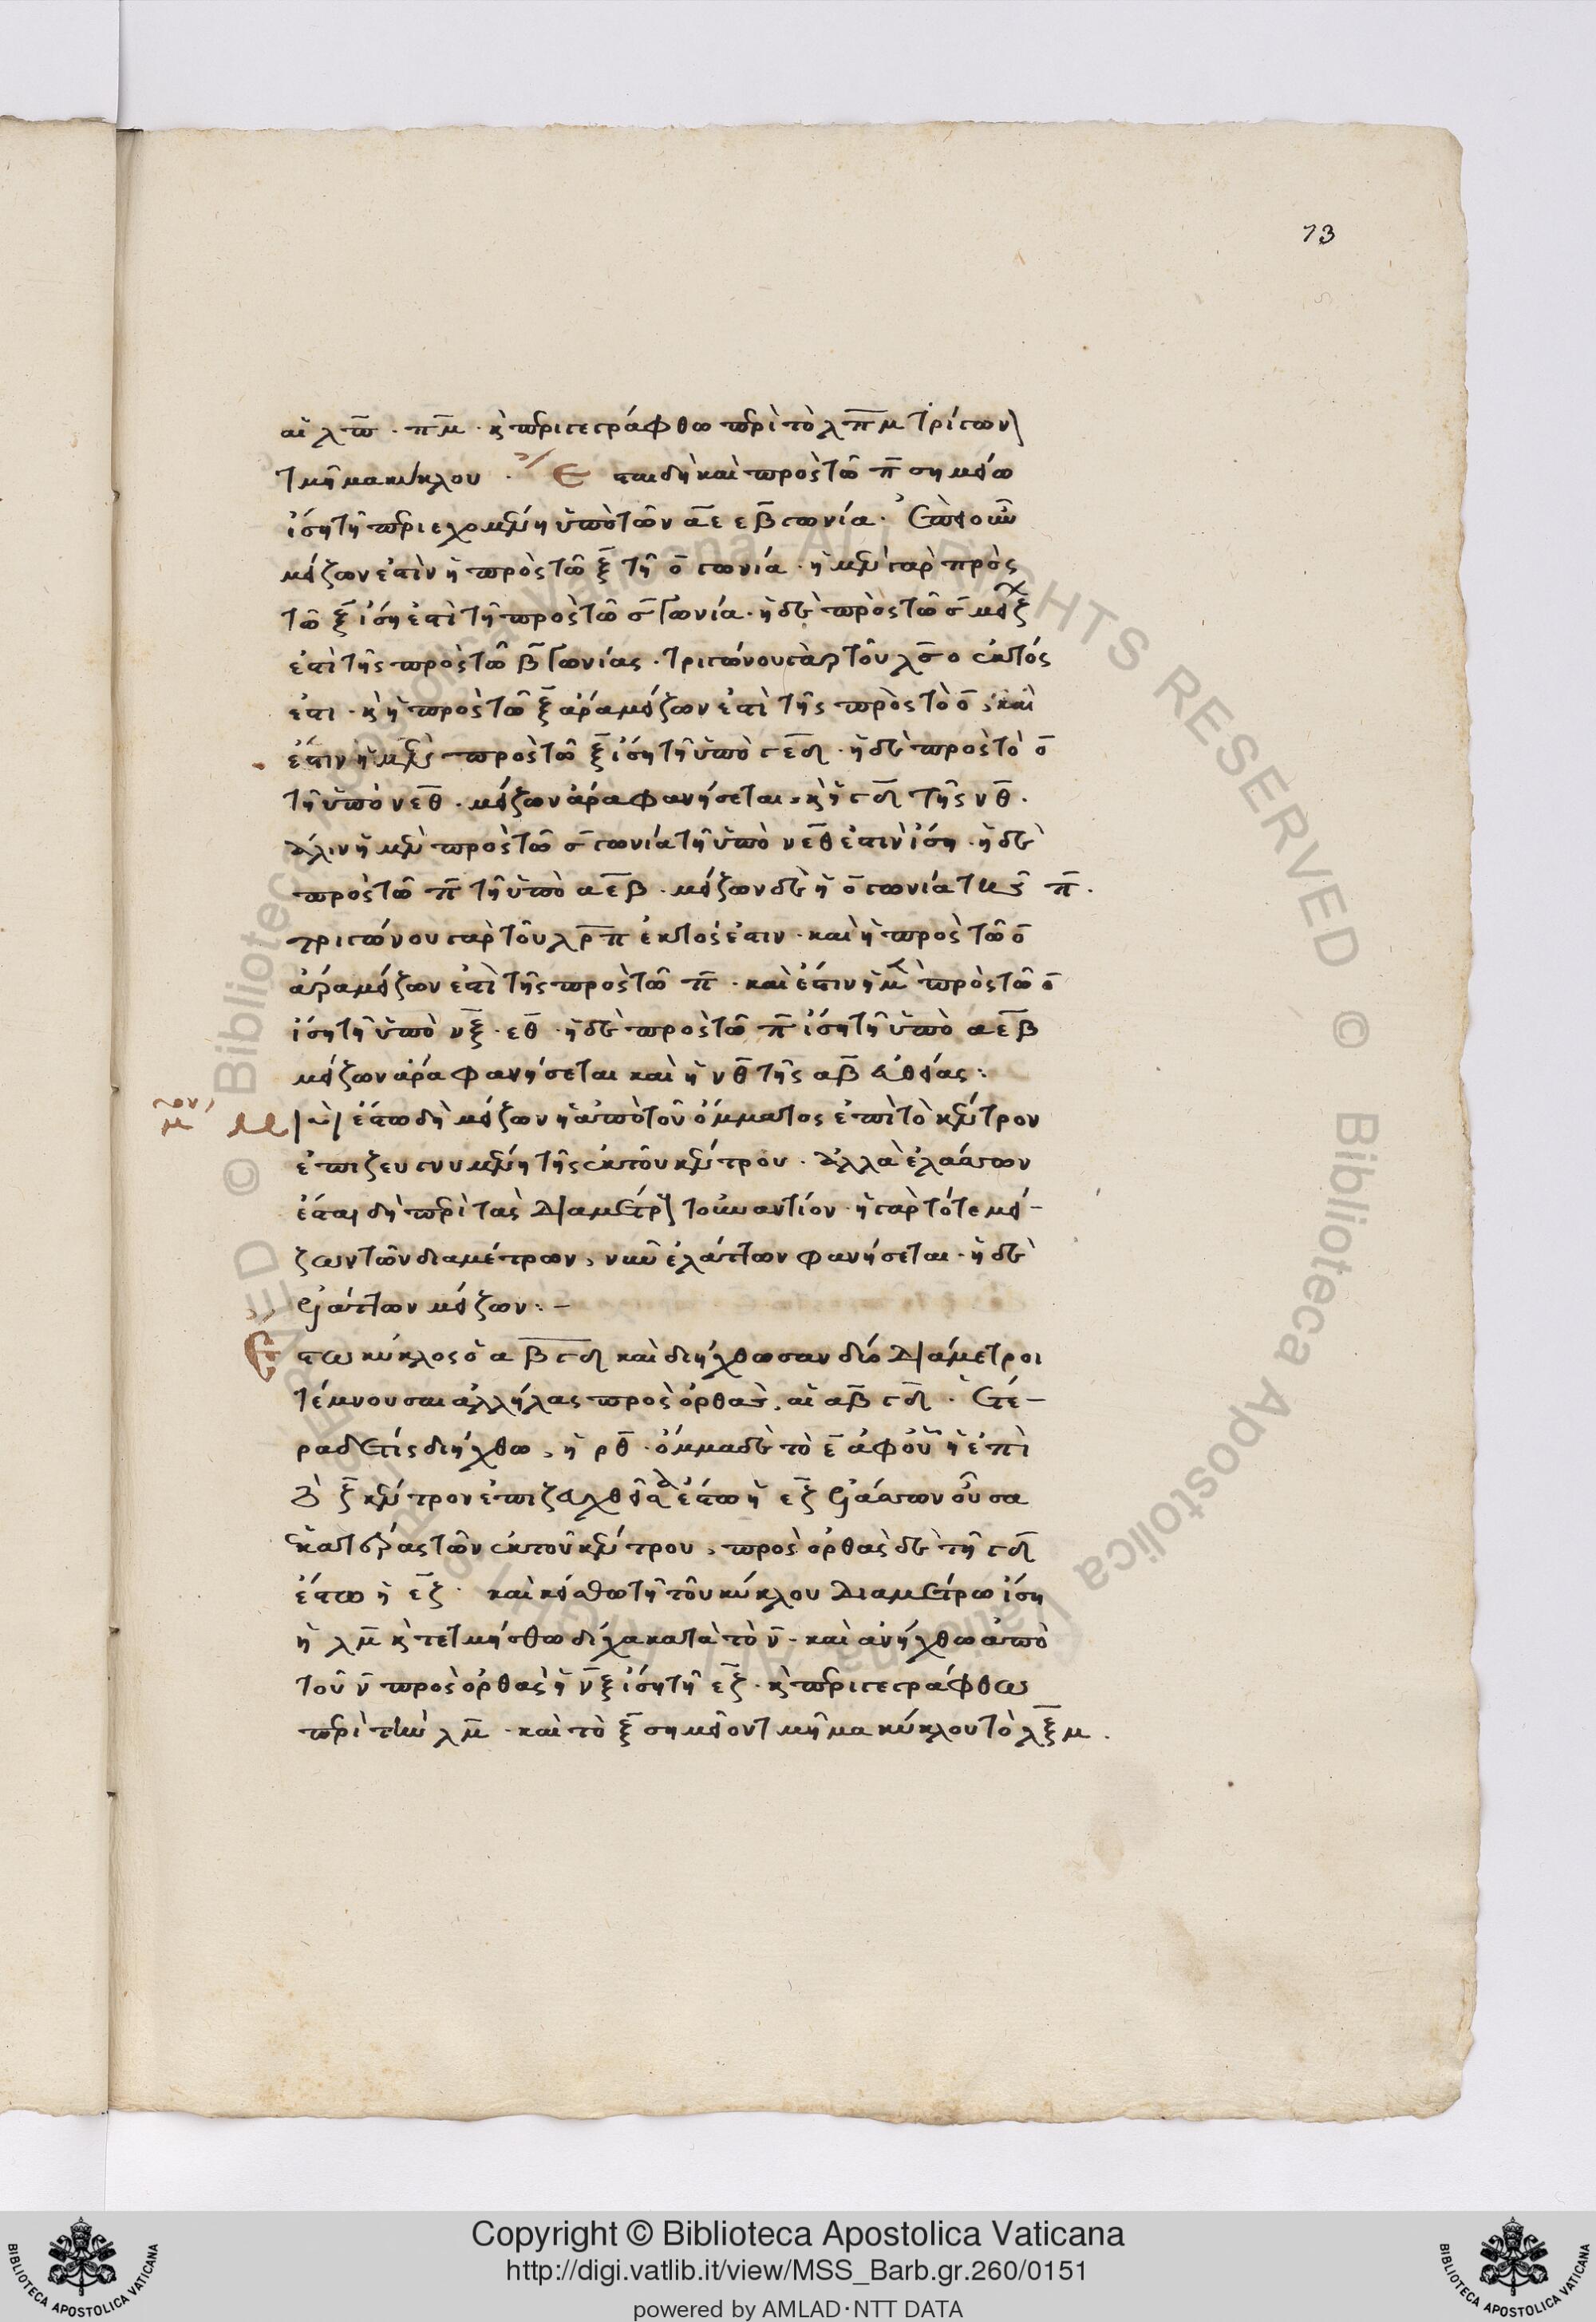 73
αἱ λπ · πμ · κ περιγεγράφθω περὶ τὸ λπμ τρίγων
τμῆμα κύκλου · Ἐπειδὴ καὶ πρὸς τῶ π σημείω
ἴση τῆ περιεχομένη ὑπὸ τῶν αε εβ γωνία · ἐπεὶ οὖν
μείζων ἐστὶν ἡ πρὸς τῶ ξ τῆ ο γωνία · ἡ μὲν γὰρ πρὸς
τῶ ξ ἴση ἐστὶ τῆ πρὸς τῶ σ γωνία · ἡ δὲ πρὸς τῶ σ μείζ
ἐστὶ τῆς πρὸς τῶ β γωνίας · τριγώνου γὰρ τοῦ λσο ἐκτός
ἐστι · κ ἡ πρὸς τῶ ξ ἄρα μείζων ἐστὶ τῆς πρὸς τὸ ο, καὶ
ἔστιν ἡ μὲν πρὸς τῶ ξ ἴση τῆ ὑπὸ γεδ · ἡ δὲ πρὸς τὸ ο
τῆ ὑπὸ νεθ · μείζων ἄρα φανήσεται κ ἡ γδ τῆς νθ ·
πάλιν ἡ μὲν πρὸς τῶ σ γωνία τῆ ὑπὸ νεθ ἐστὶν ἴση · ἡ δὲ
πρὸς τῶ π τῆ ὑπὸ αεβ · μείζων δὲ ἡ ο γωνία τῆς π ·
τριγώνου γὰρ τοῦ λρπ ἐκτός ἐστιν · καὶ ἡ πρὸς τῶ ο
ἄρα μείζων ἐστὶ τῆς πρὸς τῶ π · καὶ ἔστιν ἡ μὲν πρὸς τῶ ο
ἴση τῆ ὑπὸ νξ · εθ · ἡ δὲ πρὸς τῶ π ἴση τῆ ὑπὸ αεβ
μείζων ἄρα φανήσεται καὶ ἡ νθ τῆς αβ εὐθείας :
ἔστω δὴ μείζων ἡ ἀπὸ τοῦ ὄμματος ἐπὶ τὸ κέντρον
ἐπιζευγνυμένη τῆς ἐκ τοῦ κέντρου · ἀλλὰ ἐλάσσων
ἔσται δὴ περὶ τὰς διαμέτρ τοὐναντίον · ἡ γὰρ τότε μεί-
ζων τῶν διαμέτρων, νῦν ἐλάττων φανήσεται · ἡ δὲ
ἐλάττων μείζων : –
Ἔστω κύκλος ὁ αβγδ καὶ διήχθωσαν δύο διάμετροι
τέμνουσαι ἀλλήλας πρὸς ὀρθὰς, αἱ αβ γδ · ἑτέ–
ρα δέ τις διήχθω, ἡ ρθ · ὄμμα δὲ τὸ ε ἀφ οὗ ἡ ἐπὶ
τὸ ξ κέντρον ἐπιζευχθεῖσα ἔστω ἡ εζ ἐλάσσων οὖσα
ἑκατέρας τῶν ἐκ τοῦ κέντρου, πρὸς ὀρθὰς δὲ τῆ γδ
ἔστω ἡ εζ · καὶ κείσθω τῆ τοῦ κύκλου διαμέτρω ἴση
ἡ λμ κ τετμήσθω δίχα κατὰ τὸ ν · καὶ ἀνήχθω ἀπὸ
τοῦ ν πρὸς ὀρθὰς ἡ νξ ἴση τῆ εζ · κ περιγεγράφθω
περὶ τὴν λμ · καὶ τὸ ξ σημεῖον τμῆμα κύκλου τὸ λξμ ·
© Biblioteca Apostolica Vaticana ALL RIGHTS RESERVED
BIBLIOTECA APOSTOLICA VATICANA
Copyright © Biblioteca Apostolica Vaticana
http://digi.vatlib.it/view/MSS_Barb.gr.260/0151
powered by AMLAD·NTT DATA
BIBLIOTECA APOSTOLICA VATICANA